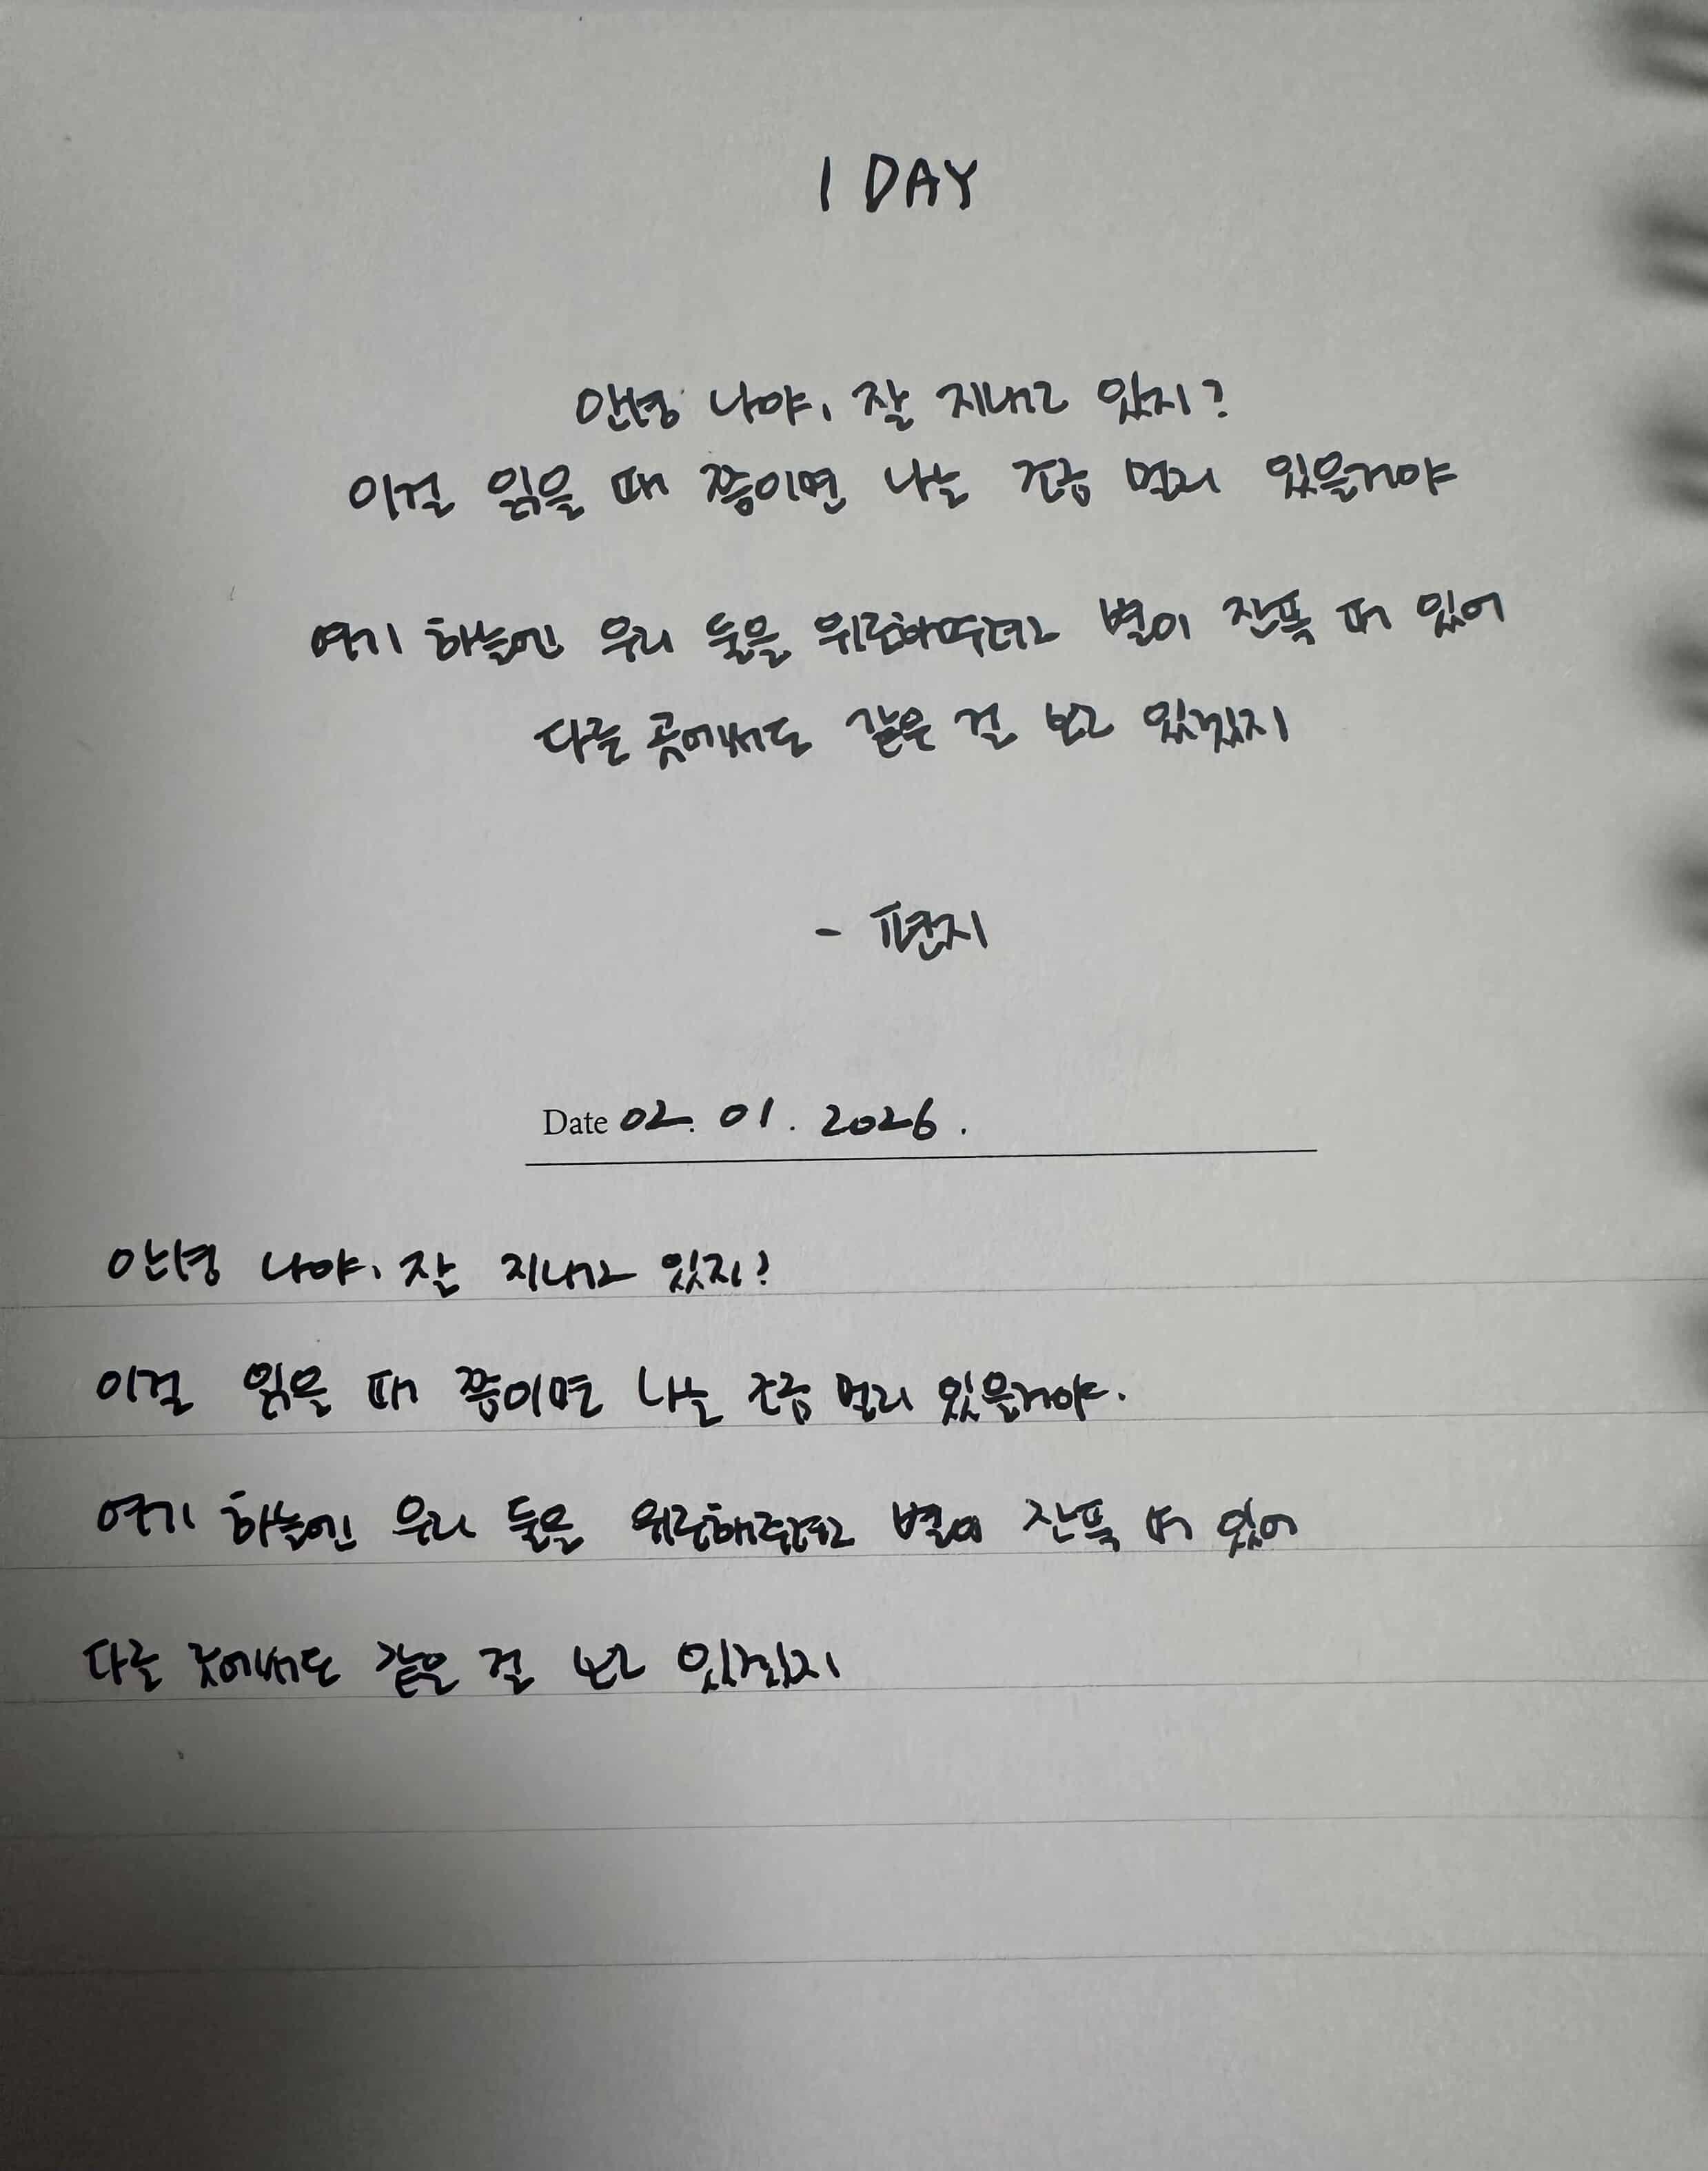 1 DAY
안녕 나야, 잘 지내고 있지?
이걸 읽을 때 쯤이면 나는 조금 멀리 있을거야
여기 하늘엔 우리 둘을 위로해주려고 별이 잔뜩 떠 있어
다른 곳에서도 같은 걸 보고 있겠지
- 편지
Date 02. 01. 2026.
안녕 나야, 잘 지내고 있지?
이걸 읽을 때 쯤이면 나는 조금 멀리 있을거야.
여기 하늘엔 우리 둘을 위로해주려고 별이 잔뜩 떠 있어
다른 곳에서도 같은 걸 보고 있겠지